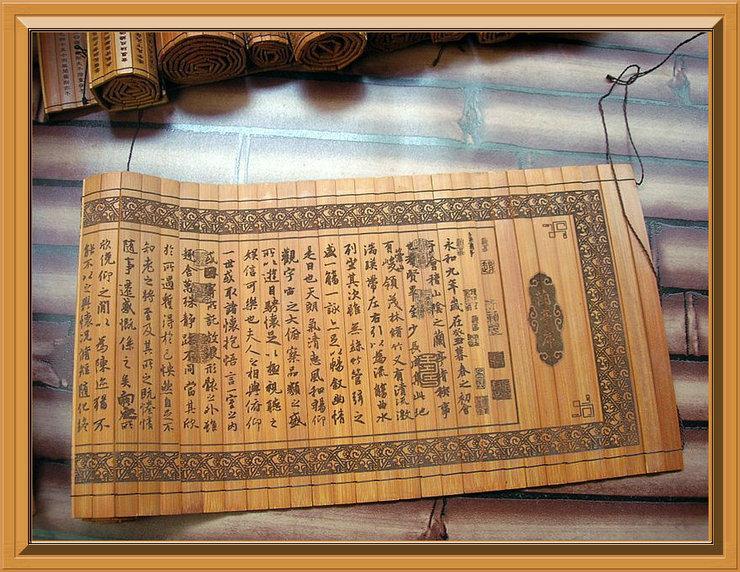 永和九年歲在癸丑暮春之初會
于會稽山陰之蘭亭脩稧事
也羣賢畢至少長咸集此地
有峻領茂林脩竹又有清流激
湍暎帶左右引以為流觴曲水
列坐其次雖無絲竹管弦之
盛一觴一詠亦足以暢敘幽情
是日也天朗氣清惠風和暢仰
觀宇宙之大俯察品類之盛
所以遊目騁懷足以極視聽之
娛信可樂也夫人之相與俯仰
一世或取諸懷抱悟言一室之內
或因寄所託放浪形骸之外雖
趣舍萬殊靜躁不同當其欣
於所遇蹔得於己快然自足不
知老之將至及其所之既惓情
隨事遷感慨係之矣向之所
欣俛仰之閒以為陳迹猶不
能不以之興懷況脩短隨化終